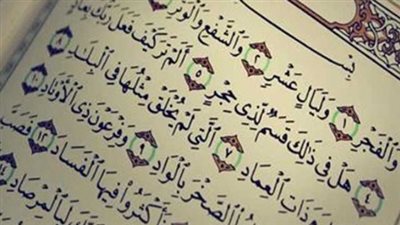 وَٱلْفَجْرِ ١ وَلَيَالٍ عَشْرٍ ٢ وَٱلشَّفْعِ وَٱلْوَتْرِ
٤ هَلْ فِى ذَٰلِكَ قَسَمٌ لِّذِى حِجْرٍ ٥ أَلَمْ تَرَ كَيْفَ فَعَلَ رَبُّكَ بِعَادٍ
ذَاتِ ٱلْعِمَادِ ٧ ٱلَّتِى لَمْ يُخْلَقْ مِثْلُهَا فِى ٱلْبِلَٰدِ ٨
ٱلصَّخْرَ بِٱلْوَادِ ٩ وَفِرْعَوْنَ ذِى ٱلْأَوْتَادِ ١٠
فَأَكْثَرُوا۟ فِيهَا ٱلْفَسَادَ ١٢ فَصَبَّ
لَبِٱلْمِرْصَادِ